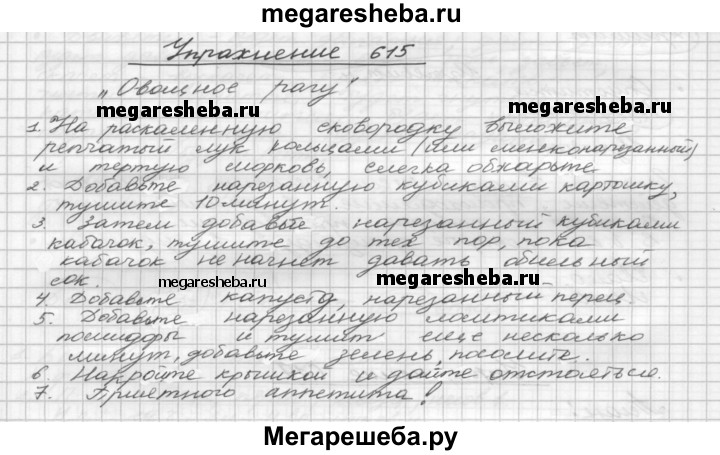 megaresheba.ru
Упражнение 615
„Овощное рагу"
megaresheba.ru
megaresheba.ru
1. На раскаленную сковородку выложите
репчатый лук кольцами (или мелконарезанный)
и тертую морковь, слегка обжарьте.
2. Добавьте нарезанную кубиками картошку,
тушите 10 минут.
3. Затем добавьте нарезанный кубиками
кабачок, тушите до тех пор, пока
кабачок не начнет давать обильный
сок.
megaresheba.ru
megaresheba.ru
4. Добавьте капусту, нарезанный перец.
5. Добавьте нарезанную ломтиками
помидоры и тушит еще несколько
минут, добавьте зелень, посолите.
6. Накройте крышкой и дайте отстояться.
7. Приятного аппетита!
Мегарешеба.ру